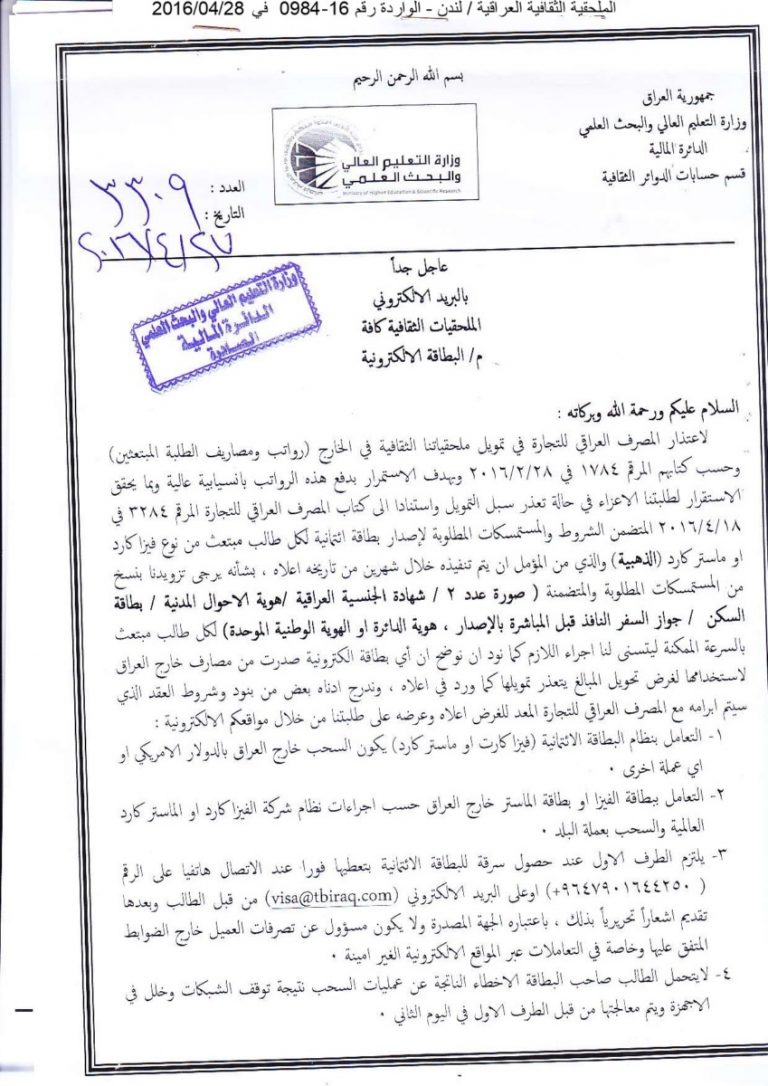 الملحقية الثقافية العراقية / لندن - الواردة رقم 16-0984 في 2016/04/28
بسم الله الرحمن الرحيم
جمهورية العراق
وزارة التعليم العالي والبحث العلمي
الدائرة المالية
قسم حسابات الدوائر الثقافية
وزارة التعليم العالي
والبحث العلمي
Ministry of Higher Education & Scientific Research
العدد : ٣٣٠٩
التاريخ :
عاجل جداً
بالبريد الالكتروني
الملحقيات الثقافية كافة
م/ البطاقة الالكترونية
وزارة التعليم العالي والبحث العلمي
الدائرة المالية
الصادرة
السلام عليكم ورحمة الله وبركاته :
لاعتذار المصرف العراقي للتجارة في تمويل ملحقياتنا الثقافية في الخارج (رواتب ومصاريف الطلبة المبتعثين)
وحسب كتابهم المرقم ١٧٨٤ في ٢٠١٦/٢/٢٨ وبهدف الاستمرار بدفع هذه الرواتب بانسيابية عالية وبما يحقق
الاستقرار لطلبتنا الاعزاء في حالة تعذر سبل التمويل واستنادا الى كتاب المصرف العراقي للتجارة المرقم ٣٢٨٤ في
٢٠١٦/٤/١٨ المتضمن الشروط والمستمسكات المطلوبة لإصدار بطاقة ائتمانية لكل طالب مبتعث من نوع فيزا كارد
او ماستر كارد (الذهبية) والذي من المؤمل ان يتم تنفيذه خلال شهرين من تاريخه اعلاه ، بشأنه يرجى تزويدنا بنسخ
من المستمسكات المطلوبة والمتضمنة ( صورة عدد ٢ / شهادة الجنسية العراقية /هوية الاحوال المدنية / بطاقة
السكن / جواز السفر النافذ قبل المباشرة بالإصدار ، هوية الدائرة او الهوية الوطنية الموحدة) لكل طالب مبتعث
بالسرعة الممكنة ليتسنى لنا اجراء اللازم كما نود ان نوضح ان أي بطاقة الكترونية صدرت من مصارف خارج العراق
لاستخدامها لغرض تحويل المبالغ يتعذر تمويلها كما ورد في اعلاه ، وندرج ادناه بعض من بنود وشروط العقد الذي
سيتم ابرامه مع المصرف العراقي للتجارة المعد للغرض اعلاه وعرضه على طلبتنا من خلال مواقعكم الالكترونية :
١- التعامل بنظام البطاقة الائتمانية (فيزا كارت او ماستر كارد) يكون السحب خارج العراق بالدولار الامريكي او
اي عملة اخرى .
٢- التعامل ببطاقة الفيزا او بطاقة الماستر خارج العراق حسب اجراءات نظام شركة الفيزا كارد او الماستر كارد
العالمية والسحب بعملة البلد .
٣- يلتزم الطرف الاول عند حصول سرقة للبطاقة الائتمانية بتعطيها فورا عند الاتصال هاتفيا على الرقم
( ٩٦٤٧٩٠١٦٤٤٢٥٠+) اوعلى البريد الالكتروني (visa@tbiraq.com) من قبل الطالب وبعدها
تقديم اشعاراً تحريرياً بذلك ، باعتباره الجهة المصدرة ولا يكون مسؤول عن تصرفات العميل خارج الضوابط
المتفق عليها وخاصة في التعاملات عبر المواقع الالكترونية الغير امينة .
٤- لايتحمل الطالب صاحب البطاقة الاخطاء الناتجة عن عمليات السحب نتيجة توقف الشبكات وخلل في
الاجهزة ويتم معالجتها من قبل الطرف الاول في اليوم الثاني .